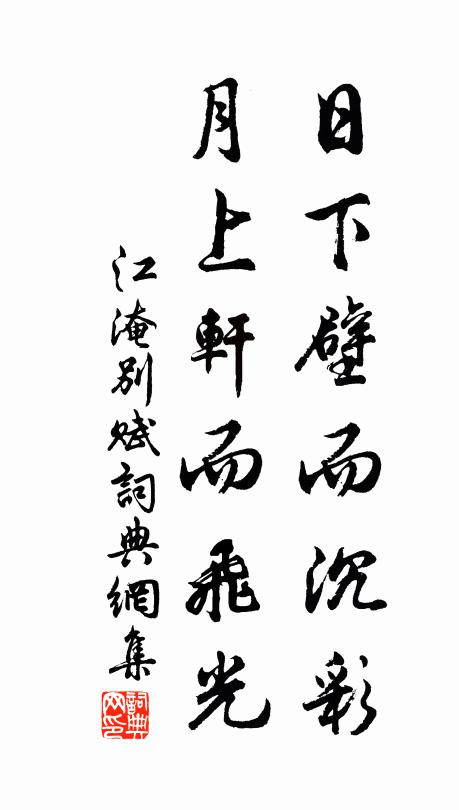 日下壁而沉彩
月上軒而飛光
江淹別賦詞典網集
詞典網印